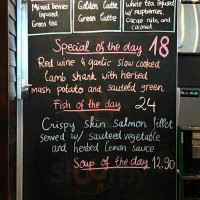 Mixed berries
Infused
Green tea
Golden Latte
Green Latte
White tea infused
w/ raspberries,
Cacao nibs, and
coconut
Special of the day 18
Red wine & garlic slow cooked
lamb shank with herbed
mash potato and sauteéd green
Fish of the day 24
Crispy skin salmon fillet
served w/ sauteed vegetable
and herbed lemon sauce
Soup of the day 12.90